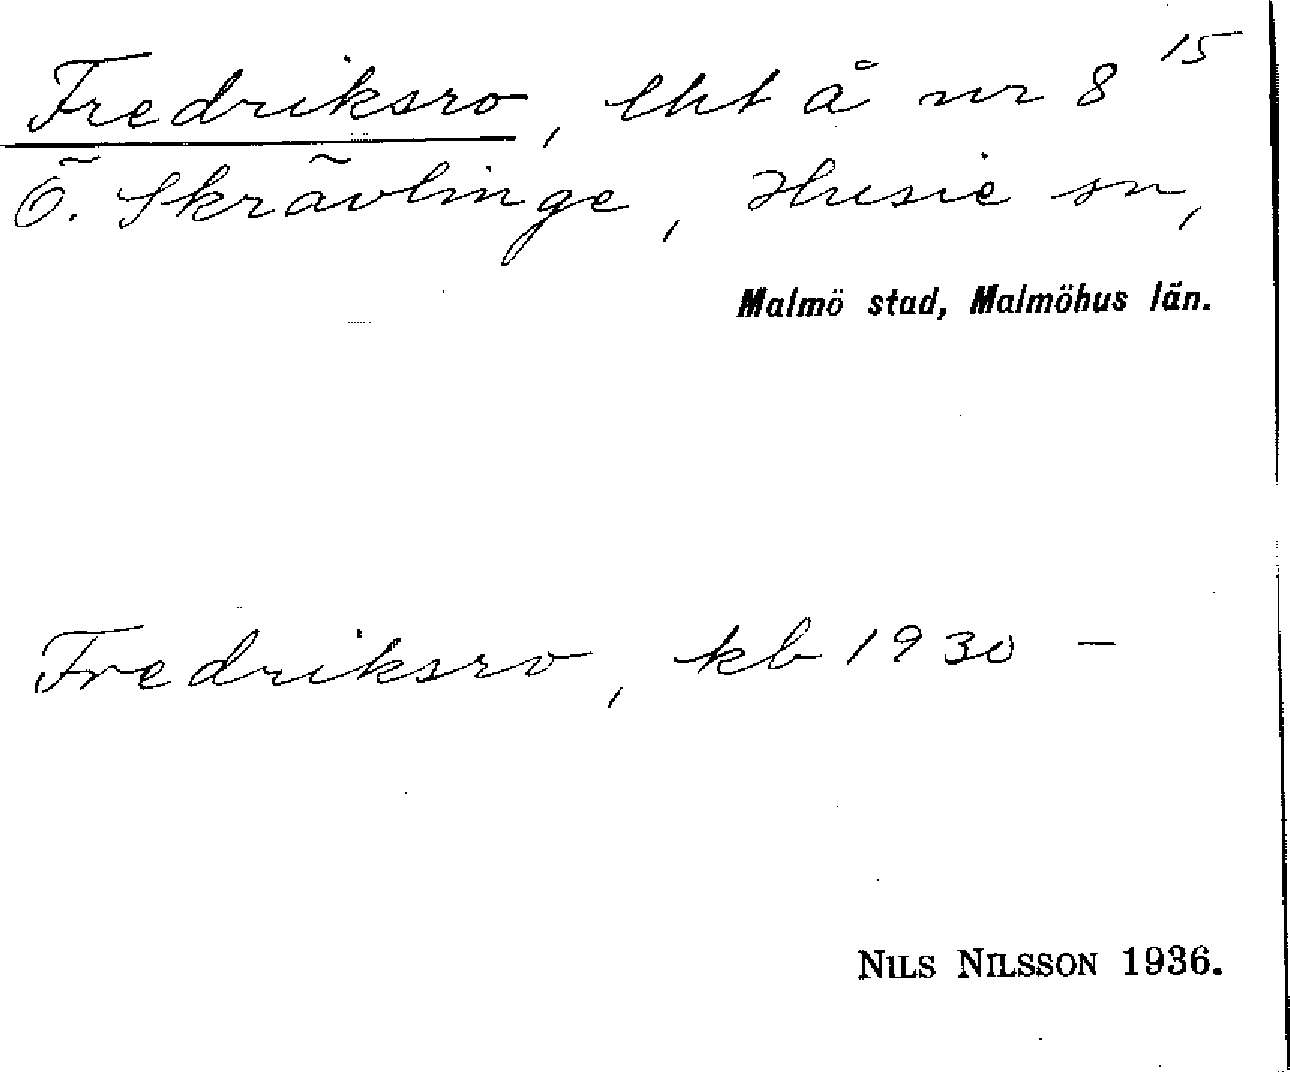 Fredriksro, lht å nr 8 15
Ö. Skrävlinge, Husie sn,
Malmö stad, Malmöhus län.
Fredriksro, kb 1930 –
NILS NILSSON 1936.